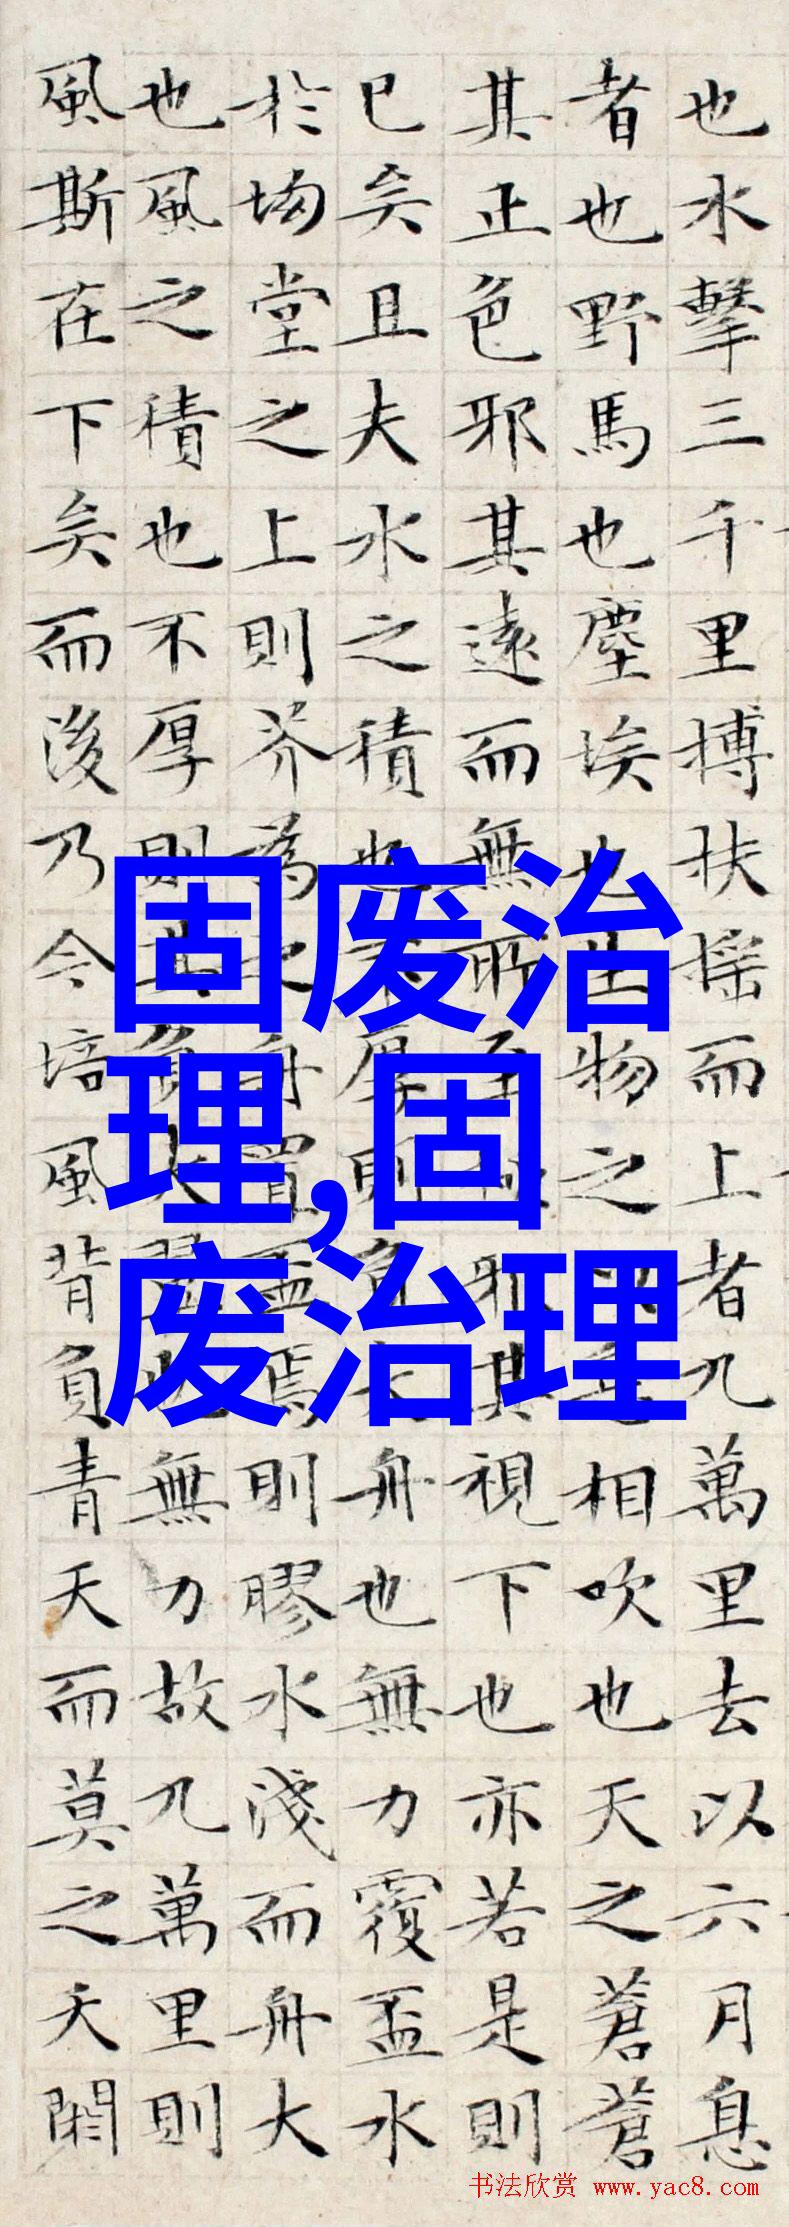 也水擊三千里搏扶搖而上者九萬里去以六月息
者也野馬也塵埃也生物之以息相吹也天之蒼蒼
其正色邪其遠而無所至極邪其視下也亦若是則
已矣且夫水之積也不厚則負大舟也無力覆盃水
於坳堂之上則芥為之舟置盃焉則膠水淺而舟大
也風之積也不厚則其負大翼也無力故九萬里則
風斯在下矣而後乃今培風背負青天而莫之夭閼
固废治
理,固
废治理
书法欣赏 www.yac8.com